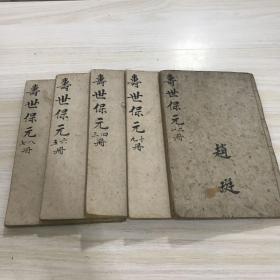 壽世保元
七八册
壽世保元
五六册
壽世保元
三四册
壽世保元
九十册
壽世保元
一二册
趙珽